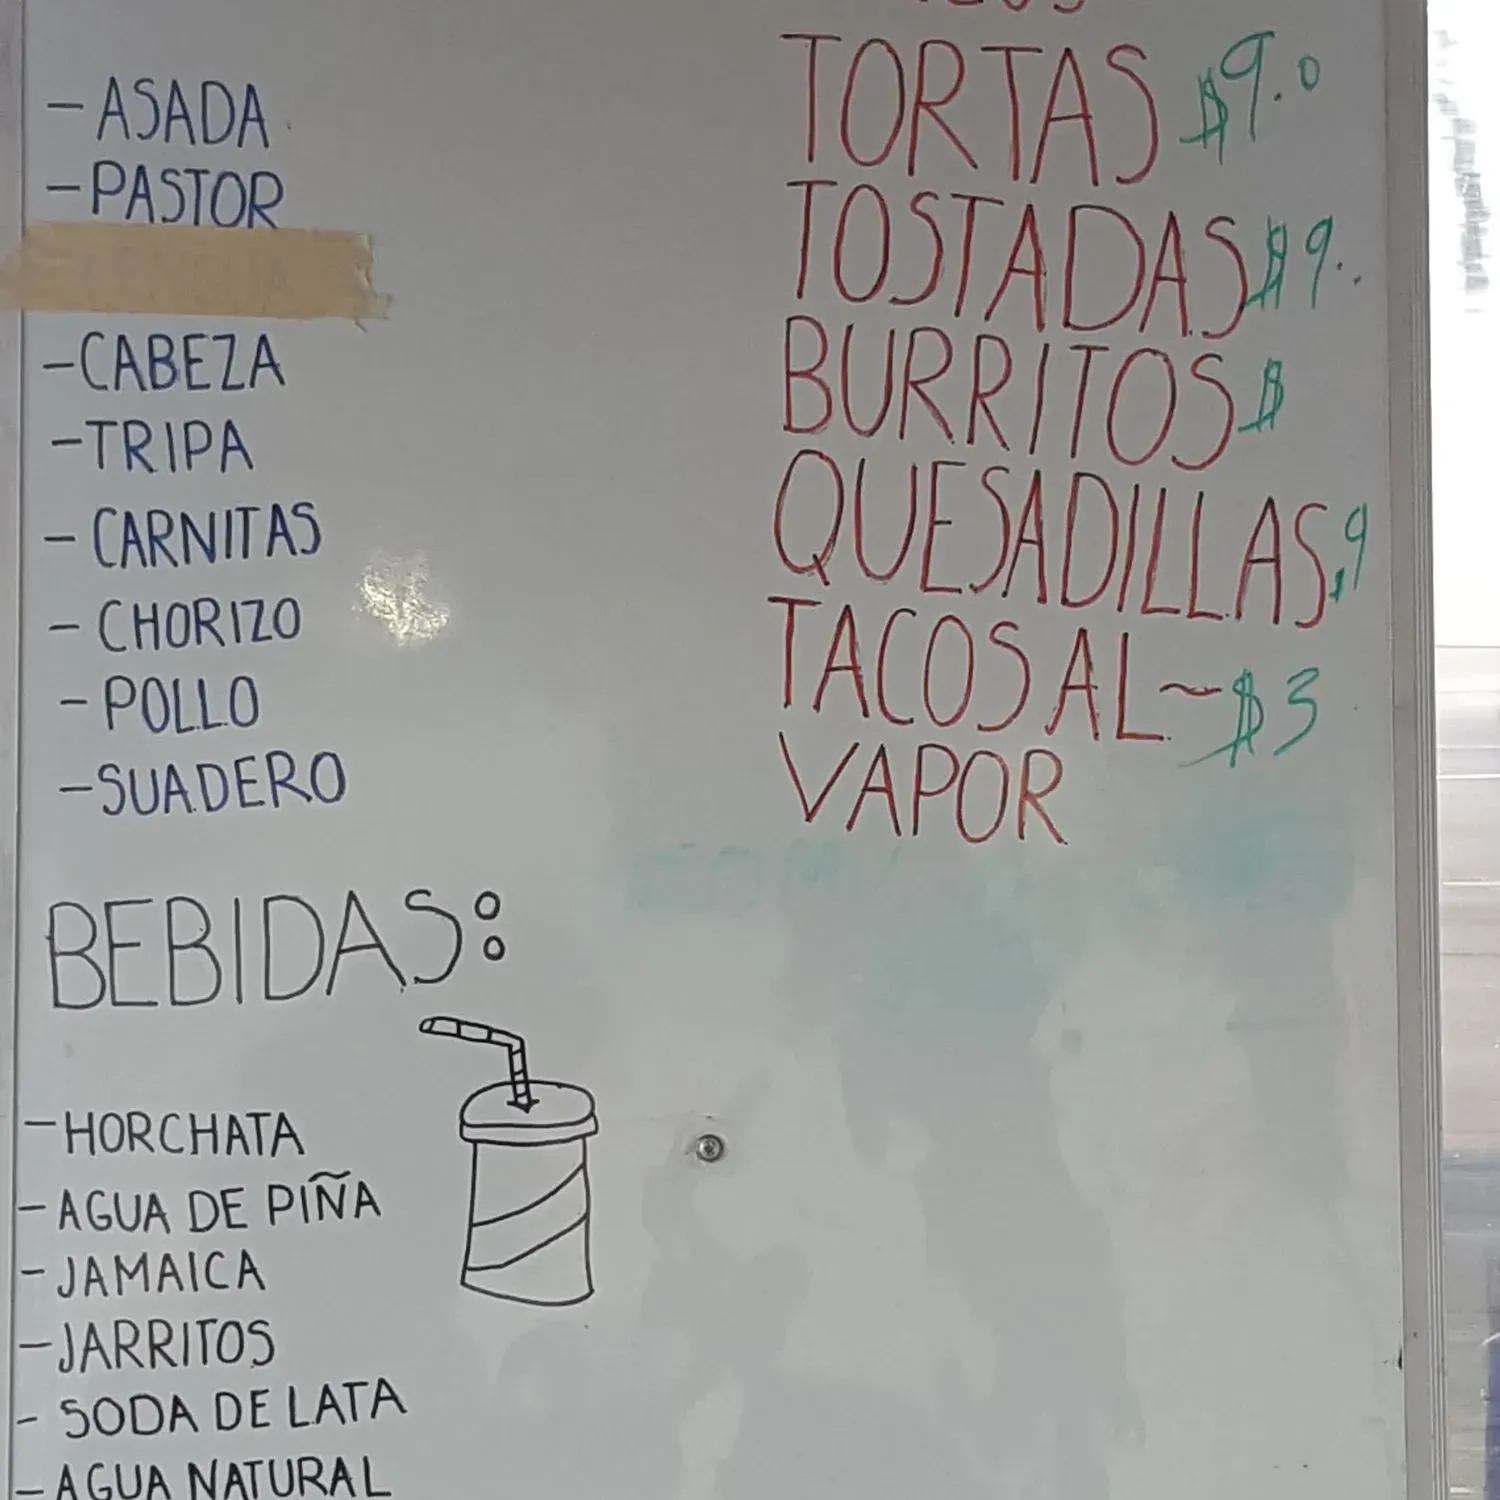 - ASADA
- PASTOR
- CABEZA
- TRIPA
- CARNITAS
- CHORIZO
- POLLO
- SUADERO
BEBIDAS:
- HORCHATA
- AGUA DE PIÑA
- JAMAICA
- JARRITOS
- SODA DE LATA
- AGUA NATURAL
TORTAS $9.0
TOSTADAS $9..
BURRITOS $
QUESADILLAS 9
TACOS AL ~ $3
VAPOR